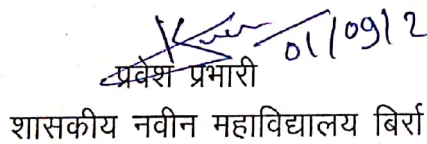 01/09/2
प्रवेश प्रभारी
शासकीय नवीन महाविद्यालय बिर्रा